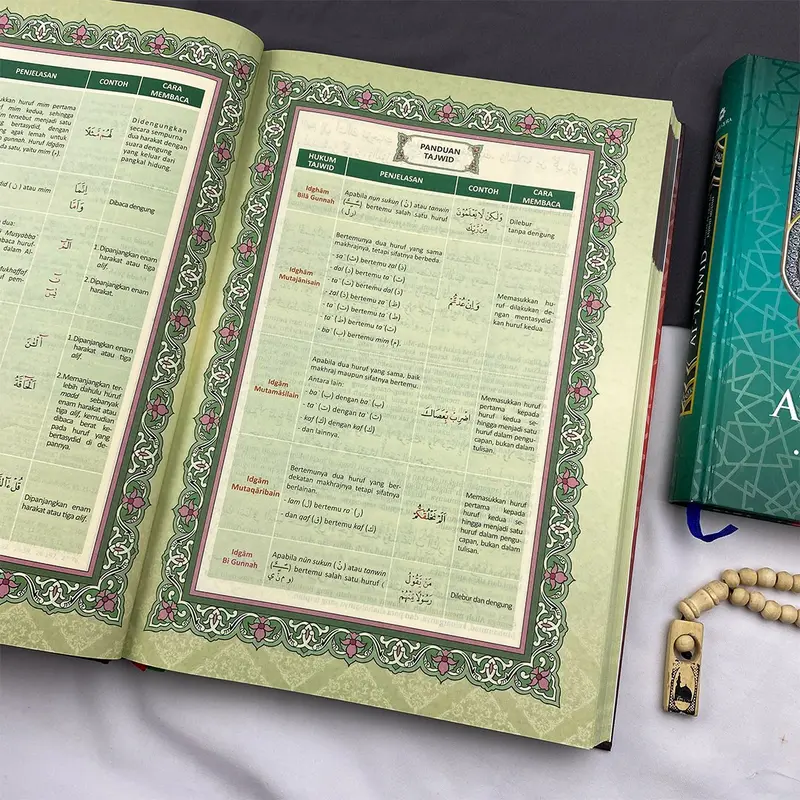 PENJELASAN
CONTOH
CARA
MEMBACA
sukkan huruf mim pertama
mim kedua, sehingga
tersebut menjadi satu
bertasydid, dengan
agak lemah untuk
gunnah. Huruf Idgām
da satu, yaitu mim (م).
Didengungkan
secara sempurna
dua harakat dengan
suara dengung
yang keluar dari
pangkal hidung.
(ن) atau mim
إِنَّمَا
وَأَمَّا
Dibaca dengung
dua:
Musyabba
baca huruf-
dalam Al-
mukhaffaf
pem-
الٓرٰ
1. Dipanjangkan enam
harakat atau tiga
alif.
2. Dipanjangkan enam
harakat.
1. Dipanjangkan enam
harakat atau tiga
alif.
2. Memanjangkan ter-
lebih dahulu huruf
madd sebanyak
enam harakat atau
tiga alif, kemudian
dibaca berat ke-
pada huruf yang
bertasydid di de-
pannya.
Dipanjangkan enam
harakat atau tiga alif.
PANDUAN
TAJWID
HUKUM
TAJWID
PENJELASAN
CONTOH
CARA
MEMBACA
Idghām
Bilā Gunnah
Apabila nun sukun (نْ) atau tanwin
(ـًـٍـٌ) bertemu salah satu huruf
(ر ل)
وَلٰكِنْ لَا يَعْلَمُوْنَ
مِنْ رَّبِّكَ
Dilebur
tanpa dengung
Idghām
Mutajānisain
Bertemunya dua huruf yang sama
makhrajnya, tetapi sifatnya berbeda.
- ṡa` (ث) bertemu żal (ذ)
- dal (د) bertemu ta` (ت)
- ta` (ت) bertemu dal (د)
- ta` (ت) bertemu ṭa` (ط)
- żal (ذ) bertemu ẓa` (ظ)
- ṭa` (ط) bertemu ta (ت)
- ba` (ب) bertemu mim (م).
وَاِنْ عُدْتُّمْ
Memasukkan hu-
ruf dilakukan de-
ngan mentasydid-
kan huruf kedua
Idgām
Mutamāṡilain
Apabila dua huruf yang sama, baik
makhraj maupun sifatnya bertemu.
Antara lain:
- ba` (ب) dengan ba` (ب)
- ta` (ت) dengan ta` (ت)
- kaf (ك) dengan kaf (ك)
- dan lainnya.
اضْرِبْ بِّعَصَاكَ
Memasukkan huruf
pertama kepada
huruf kedua se-
hingga menjadi satu
huruf dalam pengu-
capan, bukan dalam
tulisan.
Idgām
Mutaqāribain
Bertemunya dua huruf yang ber-
dekatan makhrajnya, tetapi sifatnya
berlainan.
- lam (ل) bertemu ra` (ر)
- dan qaf (ق) bertemu kaf (ك)
اَلَمْ نَخْلُقْكُّمْ
Memasukkan huruf
pertama kepada
huruf kedua se-
hingga menjadi satu
huruf dalam pengu-
capan, bukan dalam
tulisan.
Idgām
Bi Gunnah
Apabila nūn sukun (نْ) atau tanwin
(ـًـٍـٌ) bertemu salah satu huruf (
و م ن ي)
مَنْ يَّقُوْلُ
رَسُوْلًا مِّنْهُمْ
Dilebur dan dengung
A